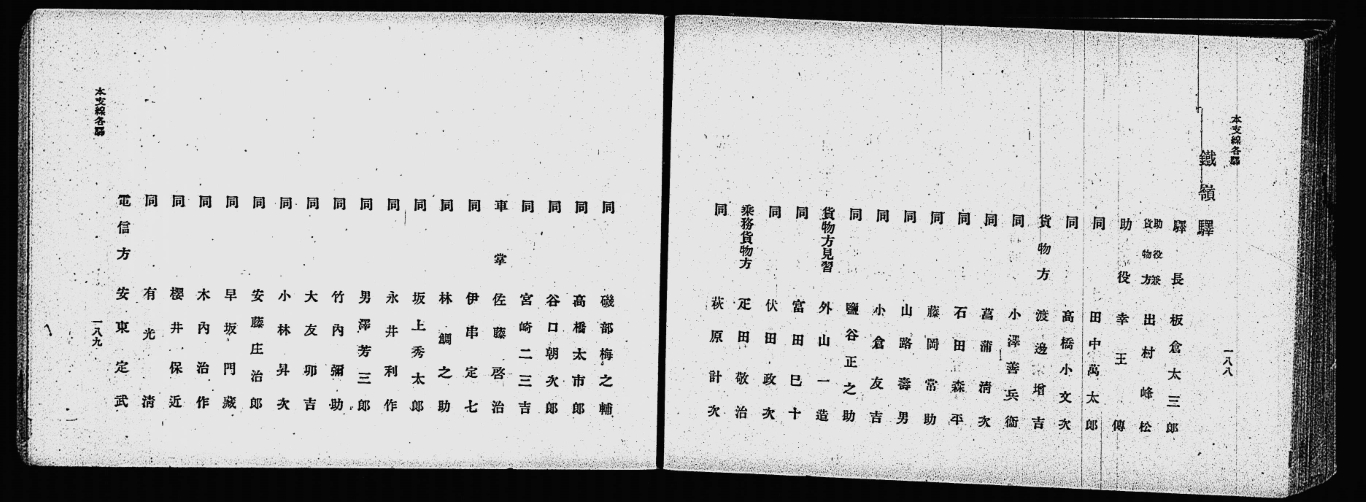 本支線各驛
鐵嶺驛
驛長 板倉太三郎
助役兼貨物方 出村峰松
助役 幸王傳
同 田中萬太郎
同 高橋小文次
貨物方 渡邊増吉
同 小澤善兵衞
同 菖蒲清次
同 石田森平
同 藤岡常助
同 山路壽男
同 小倉友吉
同 鹽谷正之助
貨物方見習 外山一造
同 富田巳十
同 伏田政次
乘務貨物方 疋田敬治
同 萩原計次
一八八
同 磯部梅之輔
同 高橋太市郎
同 谷口朝次郎
同 宮崎二三吉
車掌 佐藤啓治
同 伊串定七
同 林鯛之助
同 坂上秀太郎
同 永井利作
同 男澤芳三郎
同 竹內彌助
同 大友卯吉
同 小林昇次
同 安藤庄治郎
同 早坂門藏
同 木內治作
同 櫻井保近
同 有光清
電信方 安東定武
本支線各驛
一八九